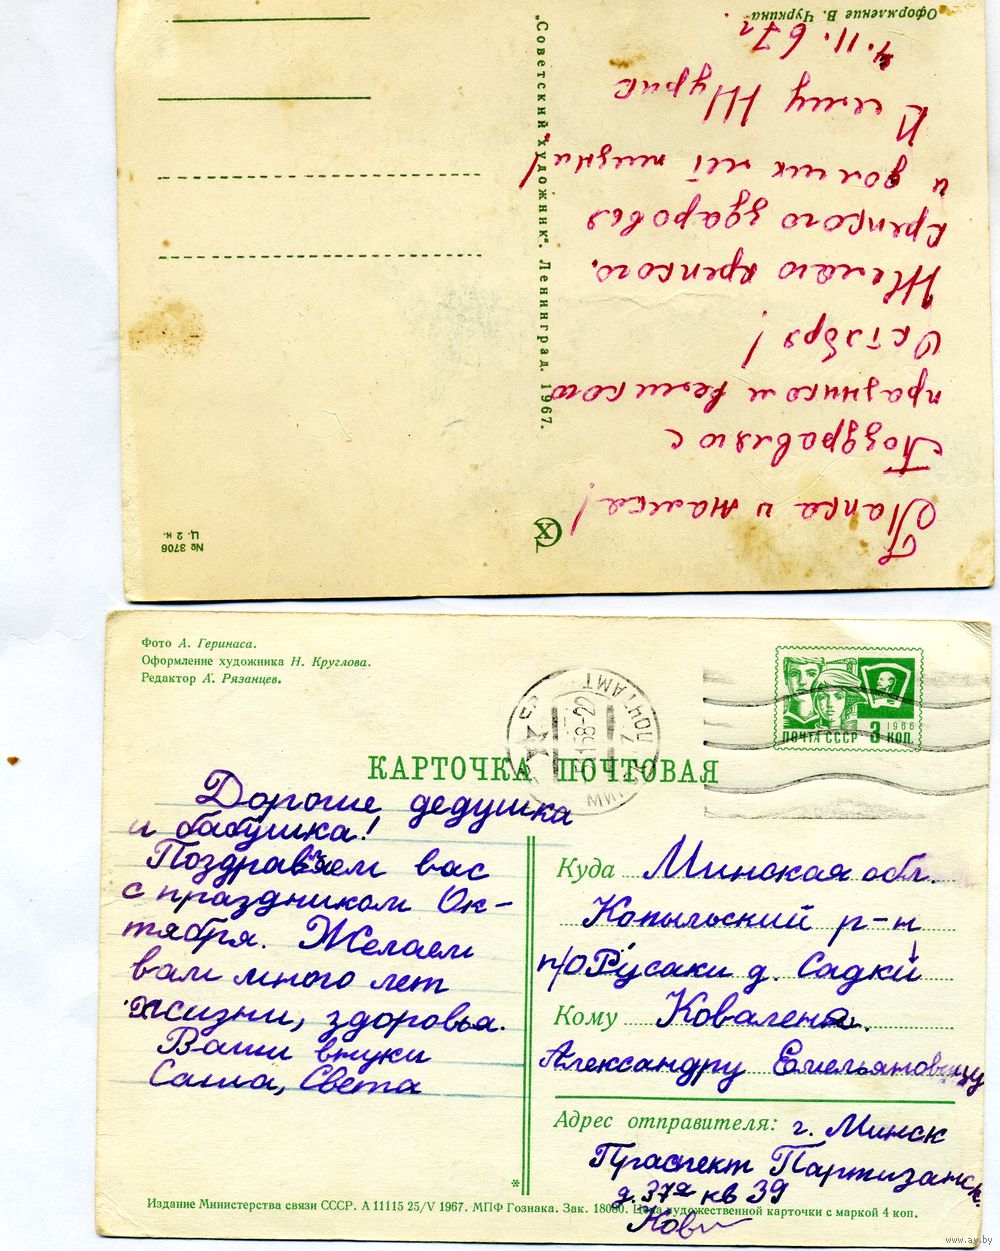 Папка и мамка!
Поздравляю с
праздником великого
Октября!
Желаю крепкого,
крепкого здоровья
и долгих лет жизни!
Шурик
4.11.67г.
Оформление В. Чуркина
„Советский художник". Ленинград. 1967.
№ 3706
Ц. 2 к.
Фото А. Геринаса.
Оформление художника Н. Круглова.
Редактор А. Рязанцев.
ПОЧТА СССР 3 КОП.
1966
ПОЧТАМТ
КАРТОЧКА ПОЧТОВАЯ
Дорогие дедушка
и бабушка!
Поздравляем вас
с праздником Ок-
тября. Желаем
вам много лет
жизни, здоровья.
Ваши внуки
Саша, Света
Куда Минская обл.
Копыльский р-н
п/о Русаки д. Садки
Кому
Александру Емельяновичу
Адрес отправителя: г. Минск
Праспект Партизанск.
д. 37а кв 39
*
Издание Министерства связи СССР. А 11115 25/V 1967. МПФ Гознака. Зак. 18080. Цена художественной карточки с маркой 4 коп.
www.ay.by